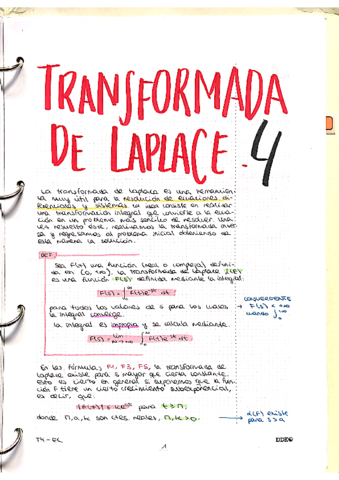 TRANSFORMADA
DE LAPLACE. 4
La transformada de Laplace es una herramien-
ta muy útil para la resolución de ecuaciones di-
ferenciales y sistemas. La idea consiste en realizar
una transformación integral que convierte a la ecua-
ción en un problema más sencillo de resolver. Una
vez resuelto este, realizamos la transformada inver-
sa y regresamos al problema inicial obteniendo de
esta manera la solución.
DEF.
Sea f(t) una función (real o compleja) defini-
da en (0, +∞). La transformada de Laplace L(f)
es una función F(s) definida mediante la integral:
F(s) = ∫₀^∞ f(t)e^-st dt
para todos los valores de s para los cuales
la integral converge.
La integral es impropia y se calcula mediante
F(s) = lim ∫₀ f(t)e^-st dt
CONVERGENTE
F(s) < +∞
cuando
En las fórmulas F1, F3, F5, la transformada de
Laplace existe para s mayor que cierta constante.
Esto es cierto en general si suponemos que la fun-
ción f tiene un cierto crecimiento subexponencial,
es decir, que:
para t ≥ n;
donde n, a, k son ctes reales, n, k > 0.
L(f) existe
para s > a
T4 - EC
1